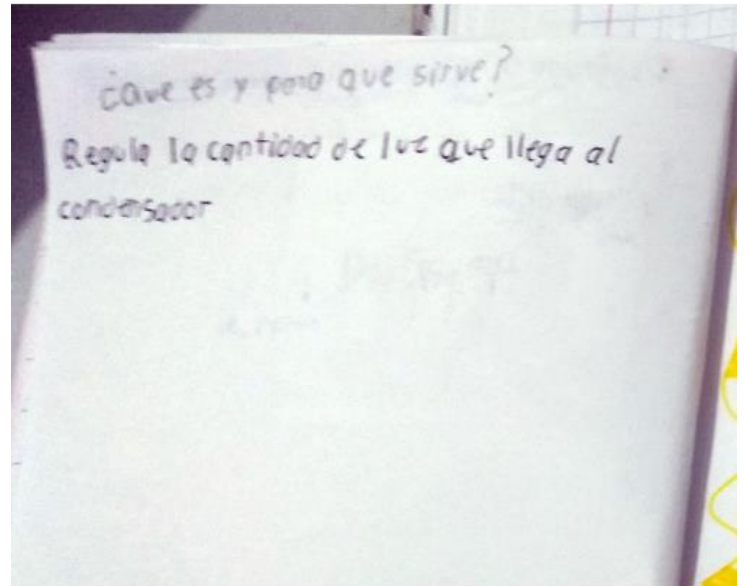 ¿Que es y para que sirve?
Regula la cantidad de luz que llega al
condensador